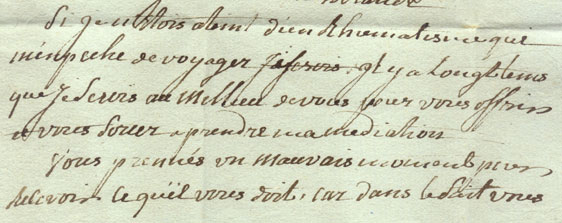 Si je n'etois atteint d'un Rhumatisme qui
m'enpeche de voyager Je serois. il y a Longtems
que Je Serois au Millieu de vous pour vous offrir
et vous a prendre ma mediation
Vous prennés un Mauvais moment pour
Recevoir ce qu'il vous doit, car dans le vous